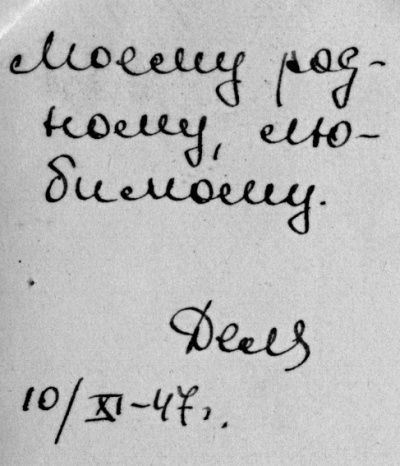 Моему род-
ному, лю-
бимому.
Деля
10/XI-47г.